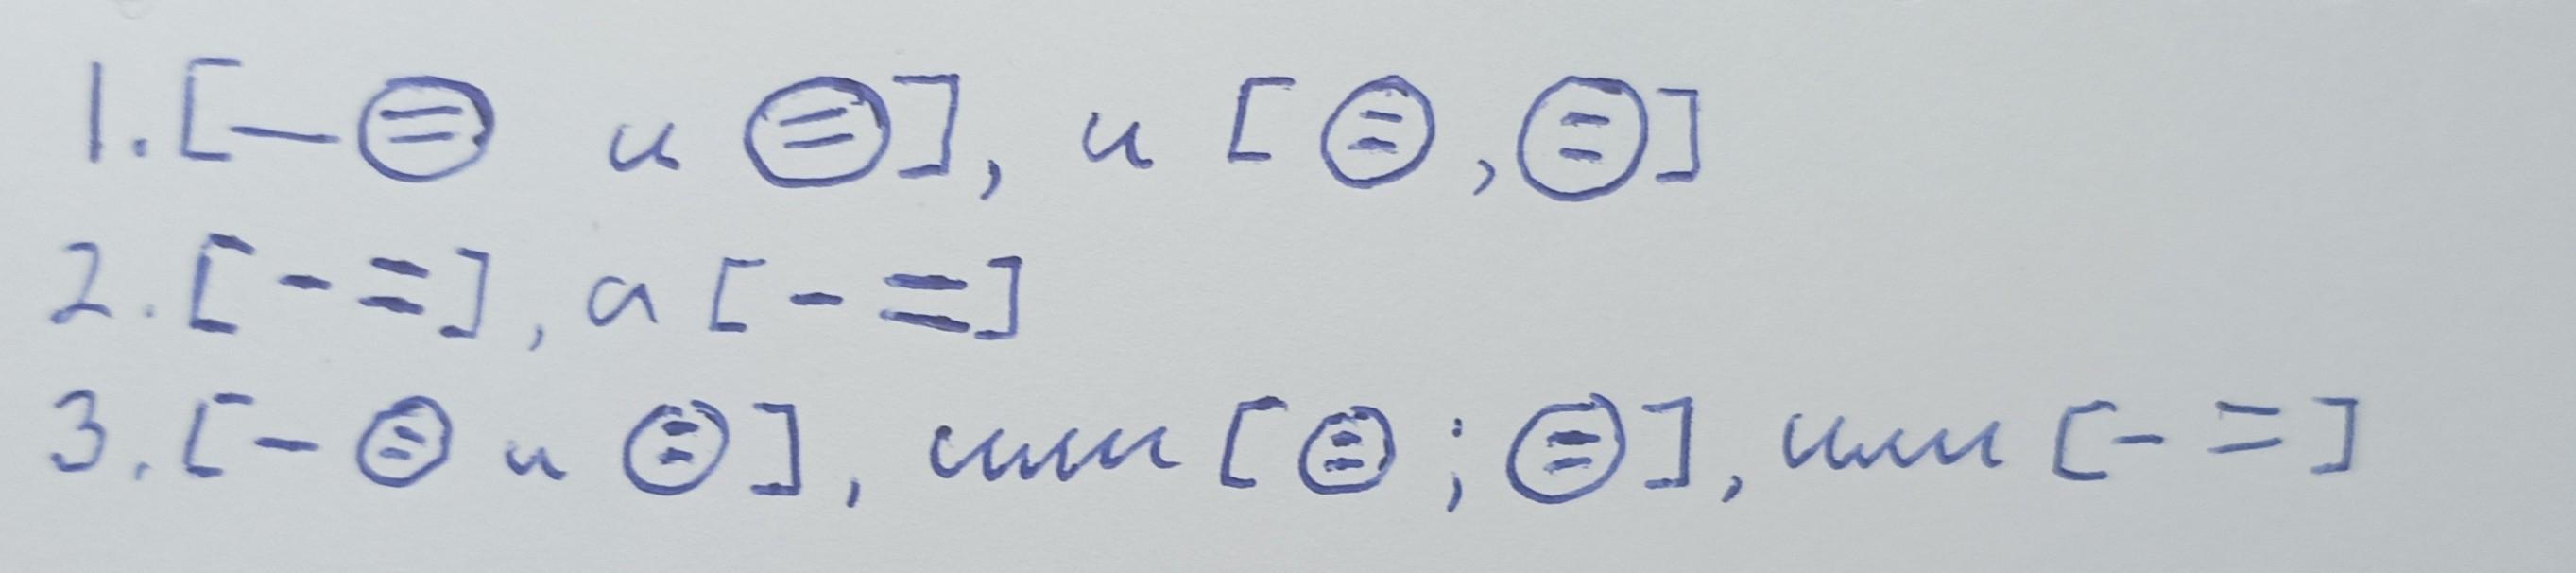 1. [— ⊜ и ⊜], и [⊜, ⊜]
2. [- =], а [- =]
3. [- ⊜ и ⊜], или [⊜; ⊜], или [- =]